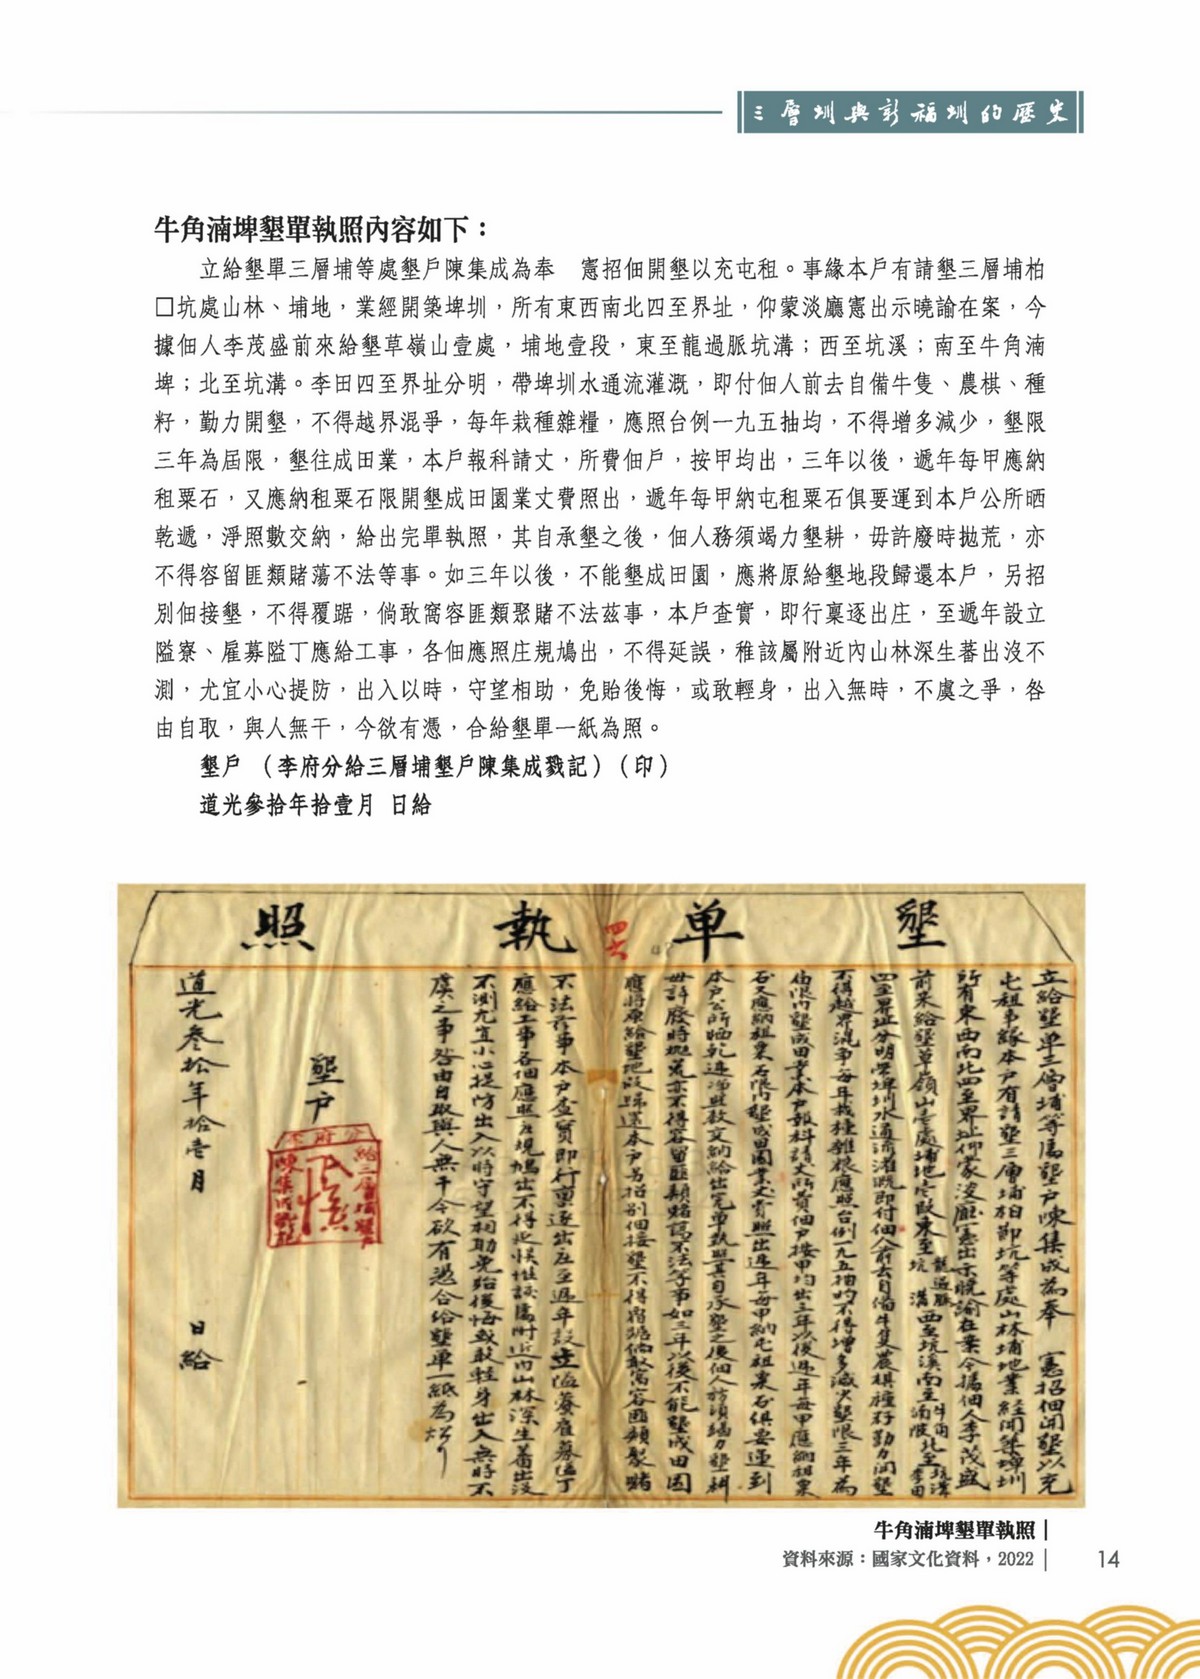 三層圳與新福圳的歷史
牛角湳埤墾單執照內容如下：
立給墾單三層埔等處墾戶陳集成為奉　憲招佃開墾以充屯租。事緣本戶有請墾三層埔柏
□坑處山林、埔地，業經開築埤圳，所有東西南北四至界址，仰蒙淡廳憲出示曉諭在案，今
據佃人李茂盛前來給墾草嶺山壹處，埔地壹段，東至龍過脈坑溝；西至坑溪；南至牛角湳
埤；北至坑溝。李田四至界址分明，帶埤圳水通流灌溉，即付佃人前去自備牛隻、農棋、種
籽，勤力開墾，不得越界混爭，每年栽種雜糧，應照台例一九五抽均，不得增多減少，墾限
三年為屆限，墾往成田業，本戶報科請丈，所費佃戶，按甲均出，三年以後，遞年每甲應納
租粟石，又應納租粟石限開墾成田園業丈費照出，遞年每甲納屯租粟石俱要運到本戶公所晒
乾遞，淨照數交納，給出完單執照，其自承墾之後，佃人務須竭力墾耕，毋許廢時拋荒，亦
不得容留匪類賭蕩不法等事。如三年以後，不能墾成田園，應將原給墾地段歸還本戶，另招
別佃接墾，不得覆踞，倘敢窩容匪類聚賭不法茲事，本戶查實，即行稟逐出庄，至遞年設立
隘寮、雇募隘丁應給工事，各佃應照庄規鳩出，不得延誤，稚該屬附近內山林深生蕃出沒不
測，尤宜小心提防，出入以時，守望相助，免貽後悔，或敢輕身，出入無時，不虞之爭，咎
由自取，與人無干，今欲有憑，合給墾單一紙為照。
墾戶　（李府分給三層埔墾戶陳集成戮記）（印）
道光參拾年拾壹月　日給
墾单執照
四六
立給墾单三層埔等處墾戶陳集成為奉　憲招佃開墾以充
屯租事緣本戶有請墾三層埔柏□坑等處山林埔地業經開築埤圳
所有東西南北四至界址仰蒙淡廳憲出示曉諭在案今據佃人李茂盛
前來給墾草嶺山壹處埔地壹段東至龍過脈坑溝西至坑溪南至牛角湳陂北至坑溝李田
四至界址分明帶埤圳水通流灌溉即付佃人前去自備牛隻農棋種籽勤力開墾
不得越界混爭每年栽種雜粮應照台例一九五抽均不得增多減少墾限三年為
限內墾成田業本戶報科請丈所費佃戶按甲均出三年以後遞年每甲應納租粟
石又應納租粟石限內墾成田園業丈費照出遞年每甲納屯租粟石俱要運到
本戶公所晒乾遞淨照数交納給出完单執照其自承墾之後佃人務須竭力墾耕
毋許廢時拋荒亦不得容留匪類賭蕩不法等事如三年以後不能墾成田园
應將原給墾地段歸還本戶另招別佃接墾不得霸踞倘敢窩容匪類聚賭
不法茲事本戶查實即行稟逐出庄至遞年設立隘寮雇募隘丁
應給工事各佃應照庄規鳩出不得延悞惟該屬附近內山林深生蕃出沒
不測尤宜小心提防出入以時守望相助免貽後悔或敢輕身出入無時不
虞之事咎由自取與人無干今欲有憑合給墾单一紙為炤
墾戶
道光叁拾年拾壹月　日給
牛角湳埤墾單執照
資料來源：國家文化資料，2022
14